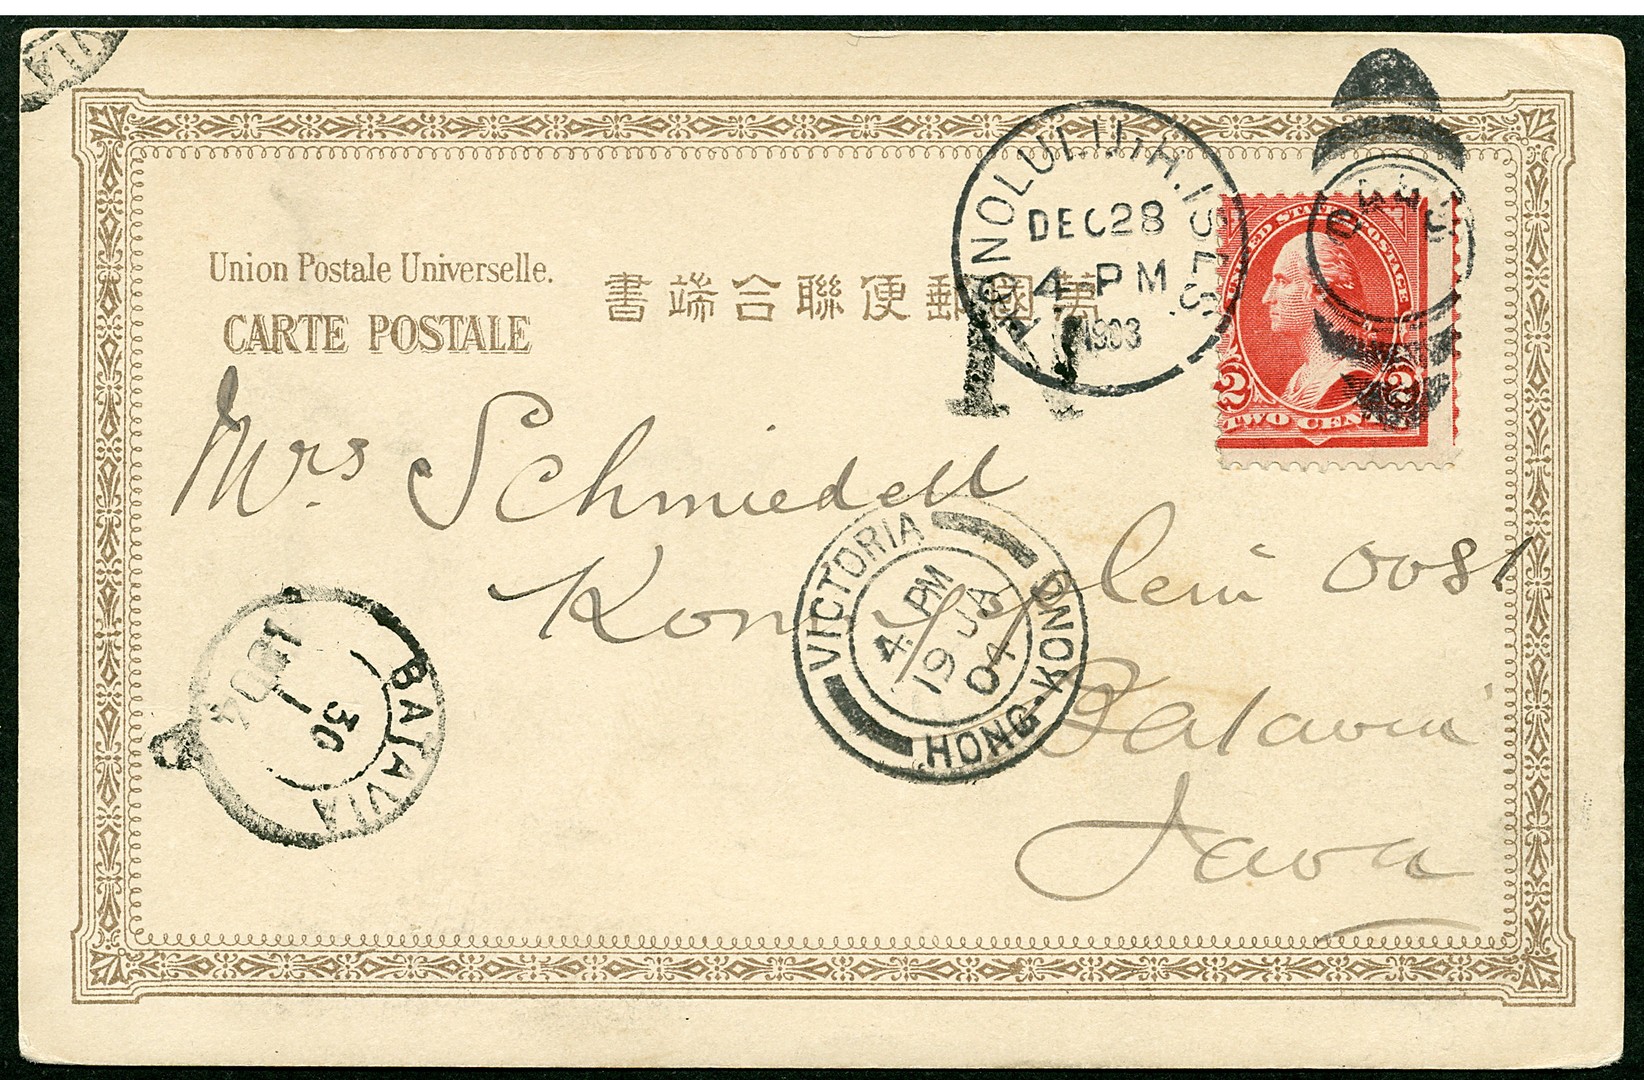 VIA
HONOLULU, H. ISLS.
DEC 28
4 - PM
1903
UNITED STATES POSTAGE
2 2
TWO CENTS
Union Postale Universelle.
CARTE POSTALE
書端合聯便郵國萬
N
Mrs Schmiedell
Koningsplein oost
Batavia
Java
VICTORIA
HONG-KONG
4 PM
19 JA
04
BATAVIA
30
1
1904